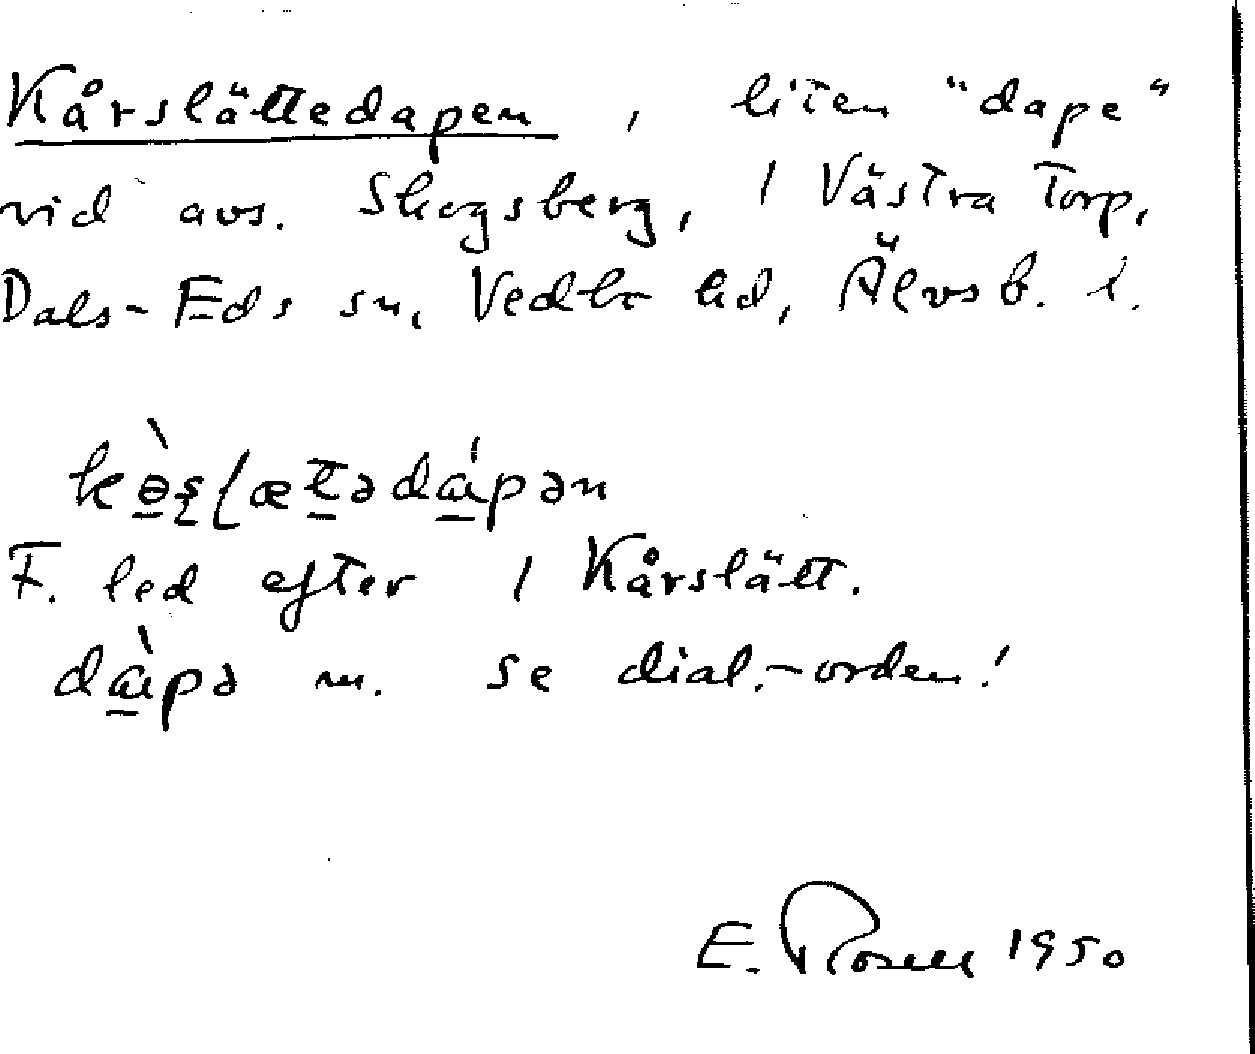 Kårslättedapen, liten "dape"
vid avs. Skogsberg, 1 Västra Torp,
Dals-Eds sn, Vedbo hd, Älvsb. l.
F. led efter 1 Kårslätt.
m. se dial.-orden!
E. Rosell 1950